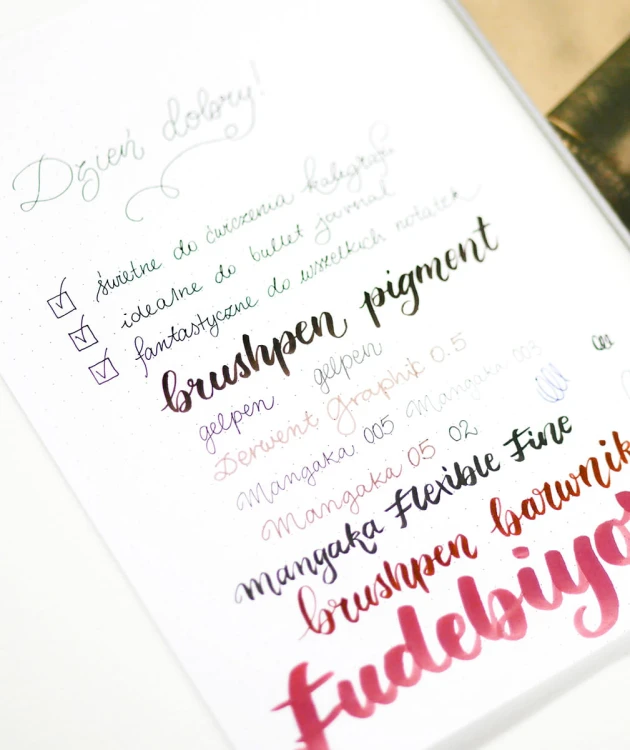 Dzień dobry!
świetne do ćwiczenia kaligrafii
idealne do bullet journal
fantastyczne do wszelkich notatek
brushpen pigment
gelpen gelpen
Derwent Graphik 0.5
Mangaka 005 Mangaka 003
Mangaka 05 02
mangaka Flexible Fine
brushpen barwnik
fudebiyo